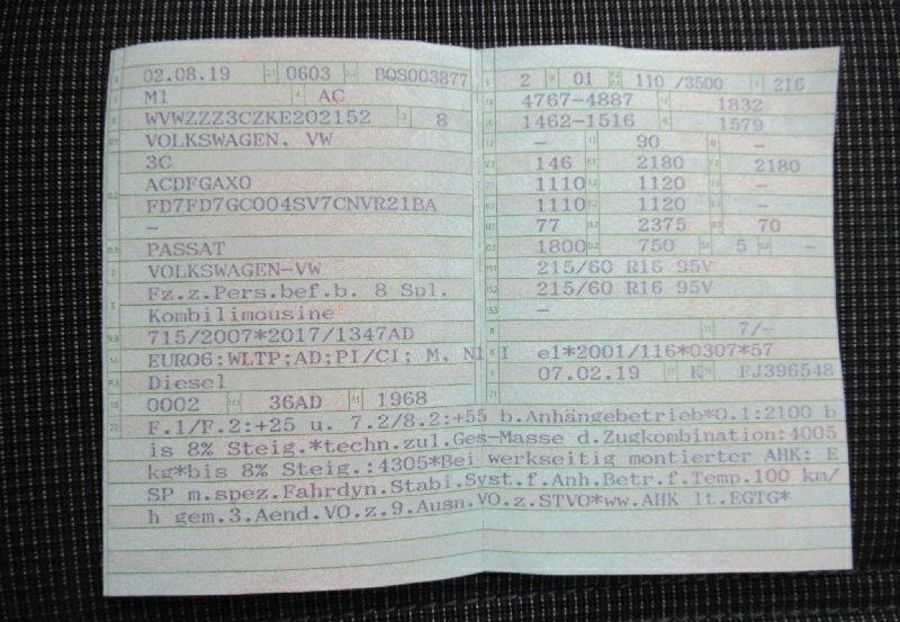 02.08.19 0603 BQS003877
M1 AC
WVWZZZ3CZKE202152 8
VOLKSWAGEN, VW
3C
ACDFGAX0
FD7FD7GC004SV7CNVR21BA
-
PASSAT
VOLKSWAGEN-VW
Fz.z.Pers.bef.b. 8 Spl.
Kombilimousine
715/2007*2017/1347AD
EURO6;WLTP;AD;PI/CI; M, N1 I
Diesel
0002 36AD 1968
2 01 110 /3500 216
4767-4887 1832
1462-1516 1579
- 90 -
146 2180 2180
1110 1120 -
1110 1120 -
77 2375 70
1800 750 5 -
215/60 R16 95V
215/60 R16 95V
-
7/-
e1*2001/116*0307*57
07.02.19 K FJ396548
F.1/F.2:+25 u. 7.2/8.2:+55 b.Anhängebetrieb*O.1:2100 b
is 8% Steig.*techn.zul.Ges-Masse d.Zugkombination:4005
kg*bis 8% Steig.:4305*Bei werkseitig montierter AHK: E
SP m.spez.Fahrdyn.Stabi.Syst.f.Anh.Betr.f.Temp.100 km/
h gem.3.Aend.VO.z.9.Ausn.VO.z.STVO*ww.AHK lt.EGTG*